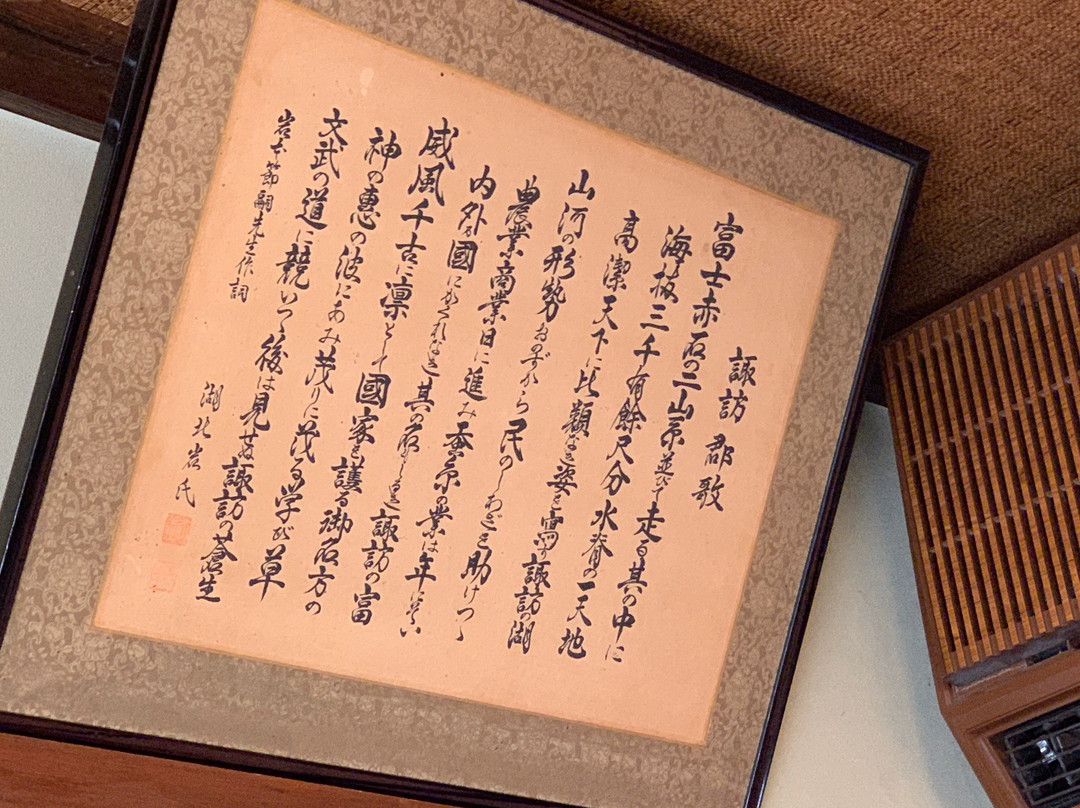 諏訪郡歌
富士赤石の二山系並びて走る其の中に
海抜三千有餘尺分水脊の一天地
高潔天下に比類なき姿を寫す諏訪の湖
山河の形勢おのづから民のしわざを助けつゝ
農業商業日に進み蚕糸の業は年に
内外國にかくれなき其の名
威風千古に凛として國家を護る御名方の
神の惠の波にあみ茂りに茂る学び草
文武の道に競いつゝ後は見せ諏訪の蒼生
岩本節嗣先生作詞
湖北岩氏